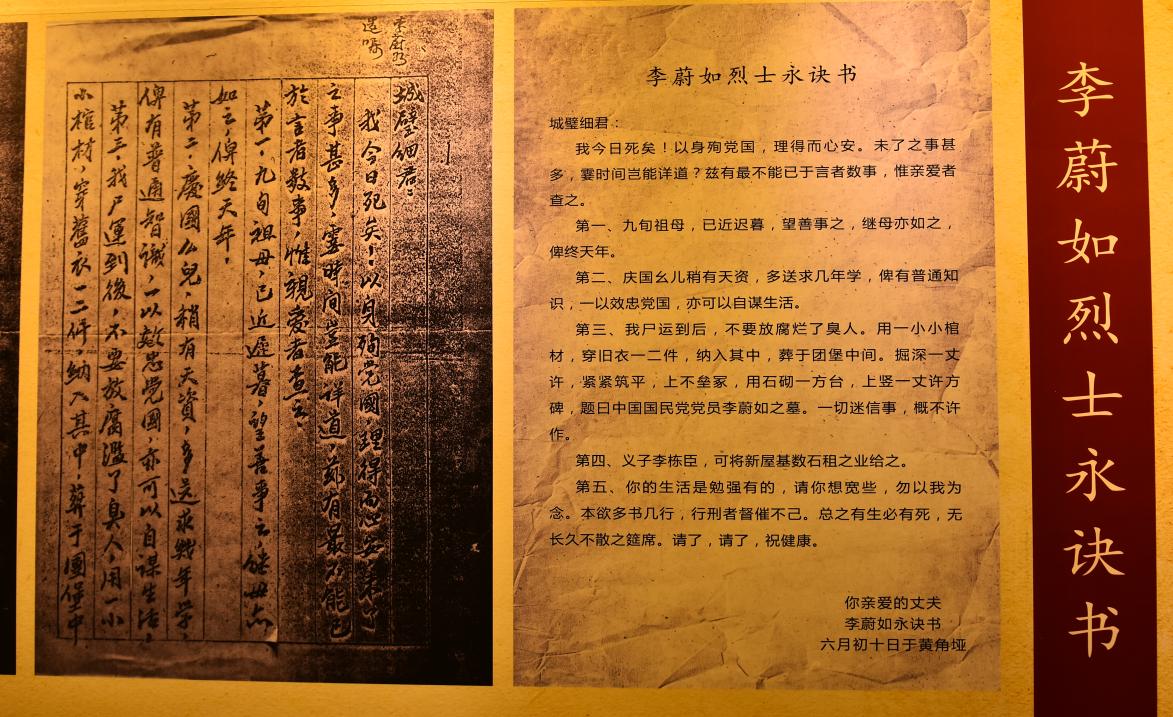 李蔚如
遗嘱
城璧细君：
我今日死矣！以身殉党國，理得而心安。未了
之事甚多，霎時间豈能详道，兹有最不能已
於言者数事，惟親愛者查之。
第一，九旬祖母，已近遲暮，望善事之，继母亦
如之，俾终天年。
第二，慶國幺兒，稍有天資，多送求幾年学，
俾有普通智識，一以效忠党國，亦可以自谋生活，
第三，我尸運到後，不要放腐濫了臭人，用一小
小棺材，穿舊衣一二件，纳入其中，葬于團堡中
李蔚如烈士永诀书
城璧细君：
我今日死矣！以身殉党国，理得而心安。未了之事甚
多，霎时间岂能详道？兹有最不能已于言者数事，惟亲爱者
查之。
第一、九旬祖母，已近迟暮，望善事之，继母亦如之，
俾终天年。
第二、庆国幺儿稍有天资，多送求几年学，俾有普通知
识，一以效忠党国，亦可以自谋生活。
第三、我尸运到后，不要放腐烂了臭人。用一小小棺
材，穿旧衣一二件，纳入其中，葬于团堡中间。掘深一丈
许，紧紧筑平，上不垒冢，用石砌一方台，上竖一丈许方
碑，题曰中国国民党党员李蔚如之墓。一切迷信事，概不许
作。
第四、义子李栋臣，可将新屋基数石租之业给之。
第五、你的生活是勉强有的，请你想宽些，勿以我为
念。本欲多书几行，行刑者督催不己。总之有生必有死，无
长久不散之筵席。请了，请了，祝健康。
你亲爱的丈夫
李蔚如永诀书
六月初十日于黄角垭
李蔚如烈士永诀书